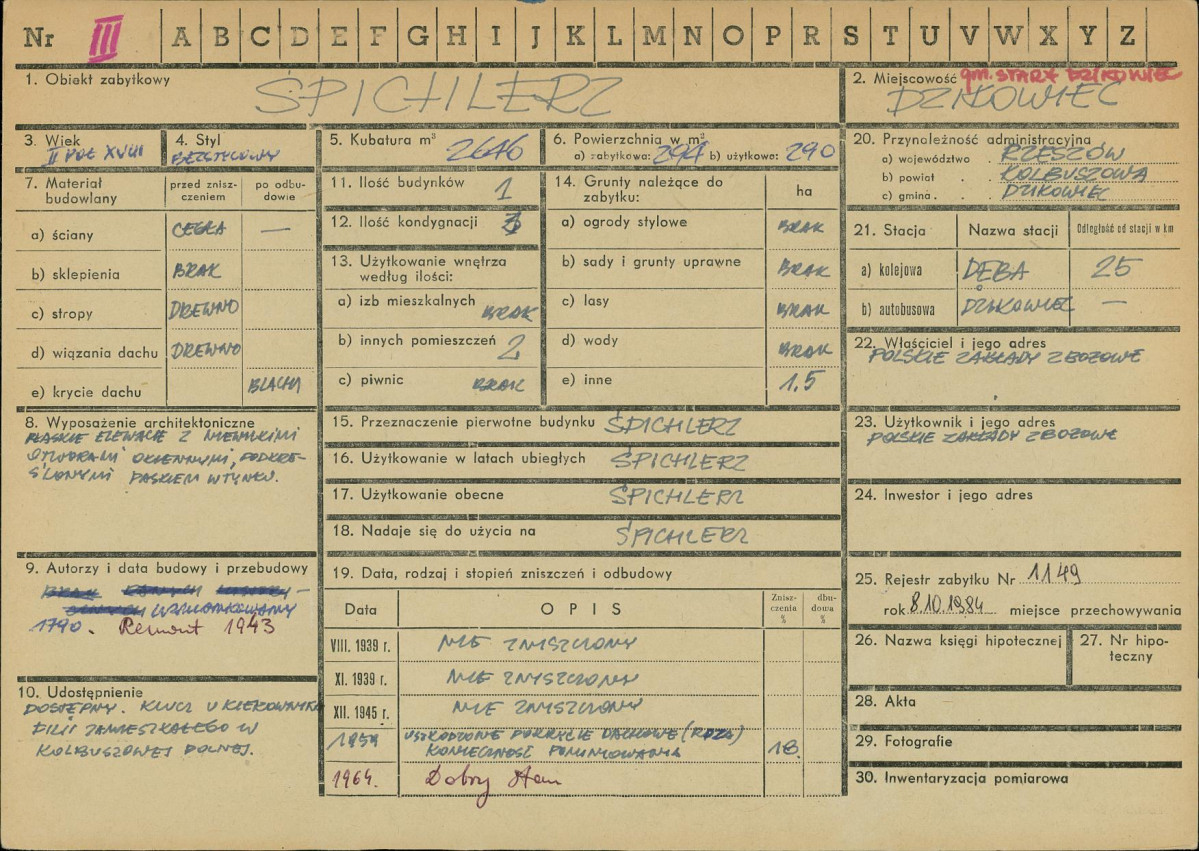 Nr III A B C D E F G H I J K L M N O P R S T U V W X Y Z
1. Obiekt zabytkowy ŚPICHLERZ
2. Miejscowość gm. STARY DZIKOWIEC
DZIKOWIEC
3. Wiek II POŁ XVIII
4. Styl BEZSTYLOWY
5. Kubatura m³ 2646
6. Powierzchnia w m²
a) zabytkowa: 294 b) użytkowa: 290
7. Materiał budowlany
przed zniszczeniem
po odbudowie
a) ściany CEGŁA —
b) sklepienia BRAK
c) stropy DREWNO
d) wiązania dachu DREWNO
e) krycie dachu BLACHA
8. Wyposażenie architektoniczne
PŁASKIE ELEWACJE Z NIEWIELKIMI
OTWORAMI OKIENNYMI, PODKRE-
ŚLONYMI PASKIEM W TYNKU.
9. Autorzy i data budowy i przebudowy
WZMIANKOWANY
1790. Remont 1943
10. Udostępnienie
DOSTĘPNY. KLUCZ U KIEROWNIKA
FILII ZAMIESZKAŁEGO W
KOLBUSZOWEJ DOLNEJ.
11. Ilość budynków 1
12. Ilość kondygnacji 3
13. Użytkowanie wnętrza
według ilości:
a) izb mieszkalnych BRAK
b) innych pomieszczeń 2
c) piwnic BRAK
14. Grunty należące do
zabytku:
ha
a) ogrody stylowe BRAK
b) sady i grunty uprawne BRAK
c) lasy BRAK
d) wody BRAK
e) inne 1.5
15. Przeznaczenie pierwotne budynku ŚPICHLERZ
16. Użytkowanie w latach ubiegłych ŚPICHLERZ
17. Użytkowanie obecne ŚPICHLERZ
18. Nadaje się do użycia na ŚPICHLERZ
19. Data, rodzaj i stopień zniszczeń i odbudowy
Data OPIS Zniszczenia % dbudowa %
VIII. 1939 r. NIE ZNISZCZONY
XI. 1939 r. NIE ZNISZCZONY
XII. 1945 r. NIE ZNISZCZONY
1959 USZKODZONE POKRYCIE DACHOWE (RDZA)
KONIECZNOŚĆ POMINIOWANIA 18
1964. Dobry stan
20. Przynależność administracyjna
a) województwo RZESZÓW
b) powiat KOLBUSZOWA
c) gmina DZIKOWIEC
21. Stacja Nazwa stacji Odległość od stacji w km
a) kolejowa DĘBA 25
b) autobusowa DZIKOWIEC —
22. Właściciel i jego adres
POLSKIE ZAKŁADY ZBOŻOWE
23. Użytkownik i jego adres
POLSKIE ZAKŁADY ZBOŻOWE
24. Inwestor i jego adres
25. Rejestr zabytku Nr 1149
rok 8.10.1984 miejsce przechowywania
26. Nazwa księgi hipotecznej
27. Nr hipoteczny
28. Akta
29. Fotografie
30. Inwentaryzacja pomiarowa